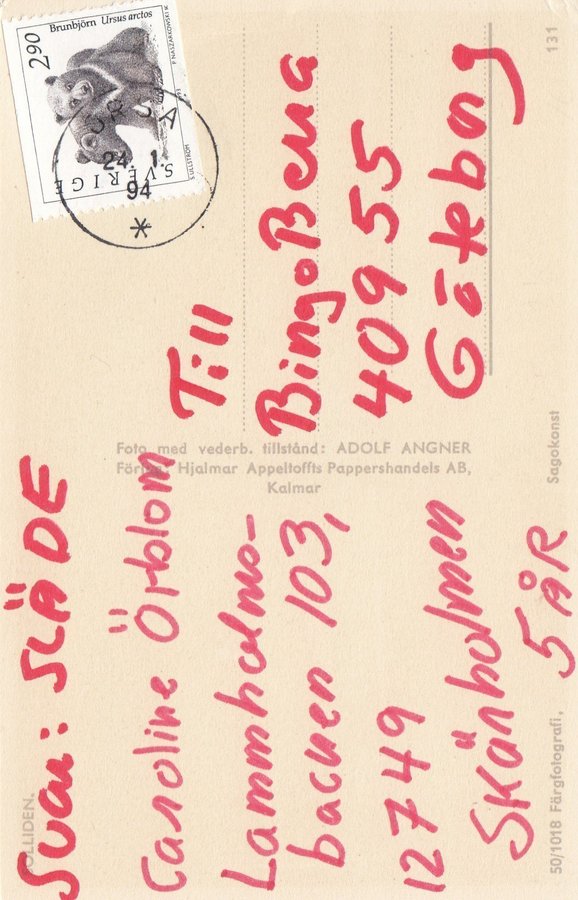 SOLLIDEN.
Svar: SLÄDE
Caroline Örblom
Lammholms-
backen 103,
12749
Skärholmen
5 ÅR
50/1018 Färgfotografi.
Foto med vederb. tillstånd: ADOLF ANGNER
Förlag: Hjalmar Appeltoffts Pappershandels AB,
Kalmar
Sagokonst
131
Brunbjörn Ursus arctos
2.90
SVERIGE
P NASZARKOWSKI SC
S ULLSTRÖM
24. 1.
94
Till
BingoBerra
40955
Göteborg